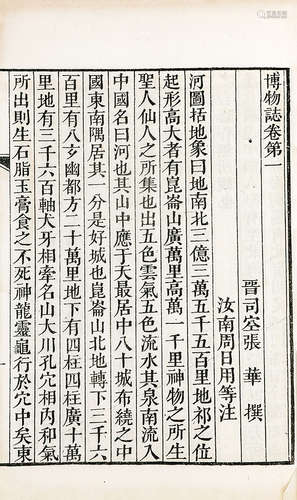 博物誌卷第一
晉司空張華撰
汝南周日用等注
河圖括地象曰地南北三億三萬五千五百里地祁之位
起形高大者有崑崙山廣萬里高萬一千里神物之所生
聖人仙人之所集也出五色雲氣五色流水其泉南流入
中國名曰河也其山中應于天最居中八十城布繞之中
國東南隅居其一分是好城也崑崙山北地轉下三千六
百里有八玄幽都方二十萬里地下有四柱四柱廣十萬
里地有三千六百軸犬牙相牽名山大川孔穴相內和氣
所出則生石脂玉膏食之不死神龍靈龜行於穴中矣東